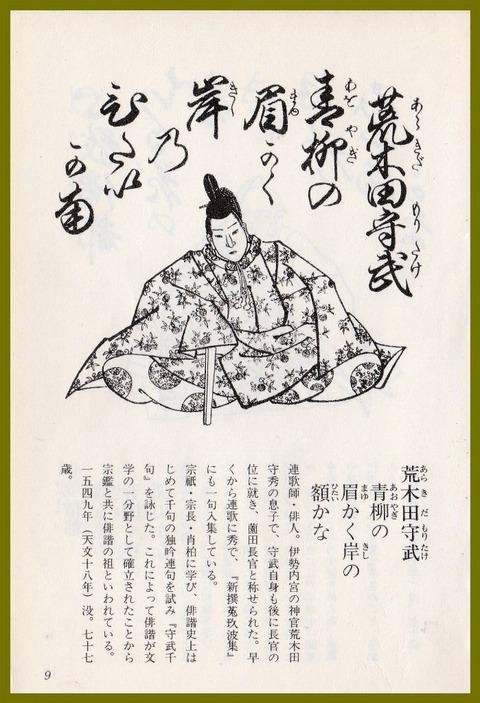 荒木田守武
あらきだ もりたけ
青柳の
あをやぎ
眉かく
まゆ
岸
きし
乃
ひたい
可南
荒木田守武
あらきだもりたけ
青柳の
あおやぎ
眉かく岸の
まゆ きし
額かな
ひたい
連歌師・俳人。伊勢内宮の神官荒木田
守秀の息子で、守武自身も後に長官の
位に就き、薗田長官と称せられた。早
くから連歌に秀で、『新撰菟玖波集』
にも一句入集している。
宗祇・宗長・肖柏に学び、俳諧史上は
じめて千句の独吟連句を試み『守武千
句』を詠じた。これによって俳諧が文
学の一分野として確立されたことから
宗鑑と共に俳諧の祖といわれている。
一五四九年（天文十八年）没。七十七
歳。
9